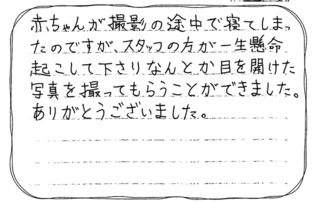 赤ちゃんが撮影の途中で寝てしまっ
たのですが、スタッフの方が一生懸命
起こして下さりなんとか目を開けた
写真を撮ってもらうことができました。
ありがとうございました。